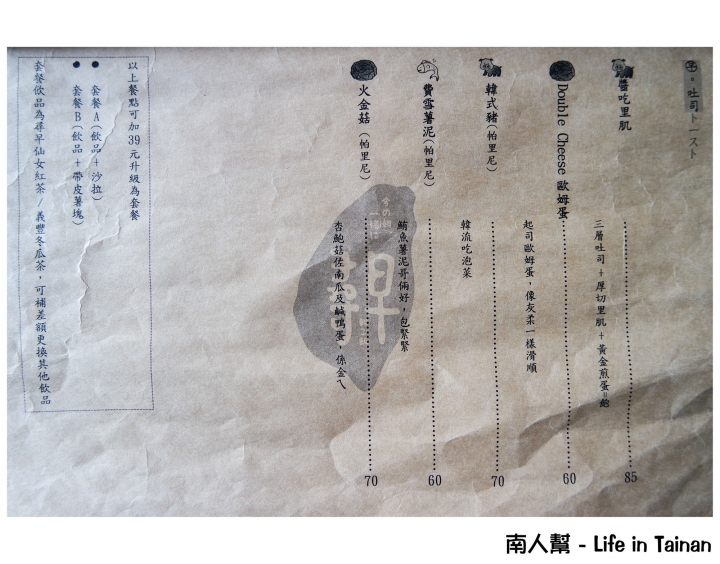 吐司トースト
醬吃里肌 85
三層吐司＋厚切里肌＋黃金煎蛋=飽
Double Cheese 歐姆蛋 60
起司歐姆蛋，像灰柔一樣滑順
韓式豬(帕里尼) 70
韓流吃泡菜
費雪薯泥(帕里尼) 60
鮪魚薯泥哥倆好，包緊緊
火金菇(帕里尼) 70
杏鮑菇佐南瓜及鹹鴨蛋，係金ㄟ
以上餐點可加39元升級為套餐
● 套餐A(飲品＋沙拉)
● 套餐B(飲品＋帶皮薯塊)
套餐飲品為尋早仙女紅茶/義豐冬瓜茶，可補差額更換其他飲品
南人幫 - Life in Tainan